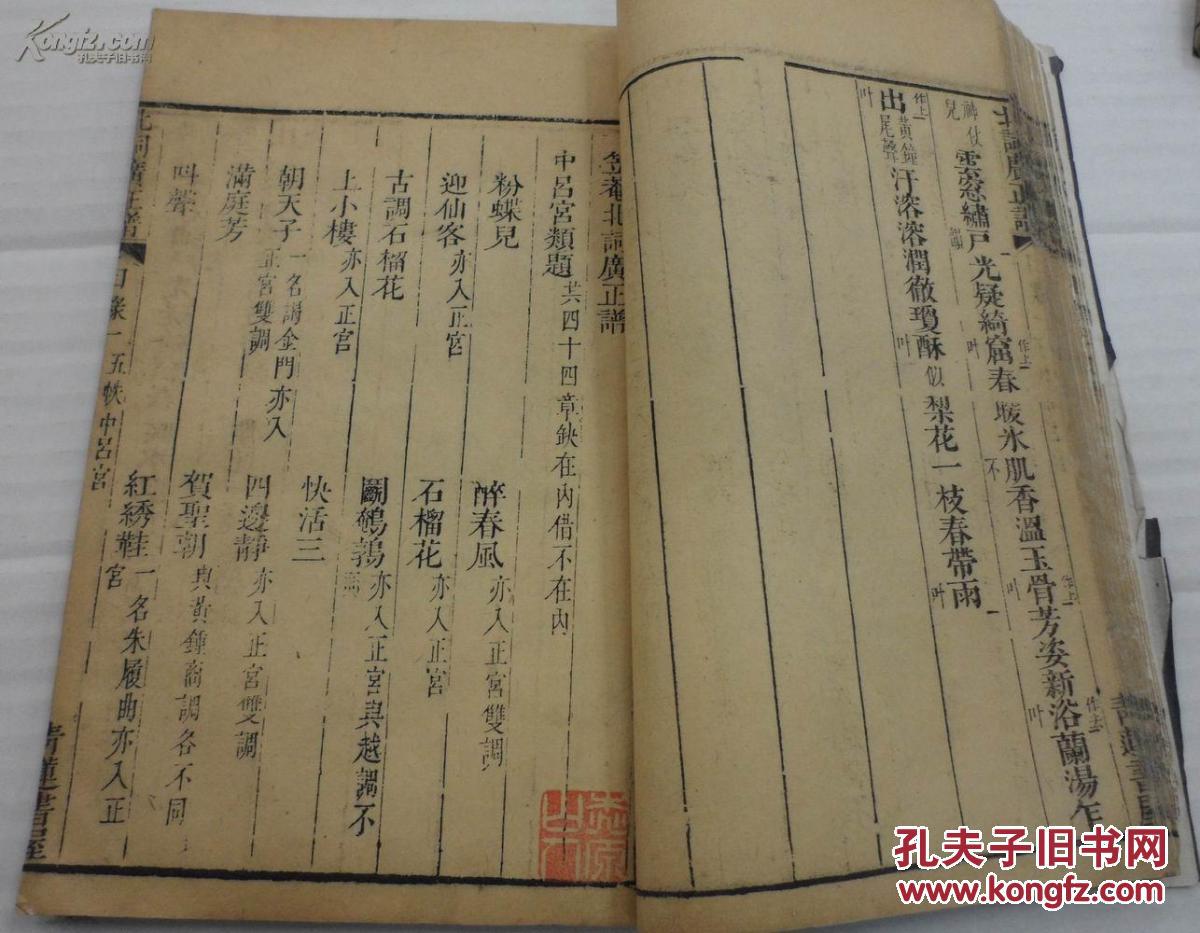 Kongfz.com
孔夫子旧书网
北詞廣正譜
雲窓繡戶光疑綺窩春暖氷肌香溫玉骨芳姿新浴蘭湯乍
出黃鐘尾聲汗溶溶潤徹瓊酥似梨花一枝春帶雨
笠菴北詞廣正譜
中呂宮類題共四十四章缺在內借不在內
粉蝶兒 醉春風亦入正宮雙調
迎仙客亦入正宮 石榴花亦入正宮
古調石榴花 鬭鵪鶉亦入正宮與越調不同
上小樓亦入正宮 快活三
朝天子一名謁金門亦入正宮雙調 四邊靜亦入正宮雙調
滿庭芳 賀聖朝與黃鍾商調各不同
叫聲 紅綉鞋一名朱履曲亦入正宮
北詞廣正譜 目錄一 五帙中呂宮 青蓮書屋
孔夫子旧书网
www.kongfz.com